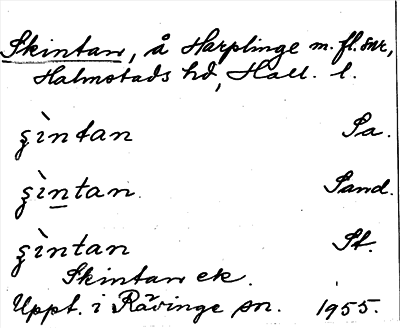 Skintan, å Harplinge m. fl. snr,
Halmstads hd, Hall. l.
ʂìntan Sa.
ʂìntan Sand.
ʂìntan St.
Skintan ek.
Uppt. i Rävinge sn. 1955.